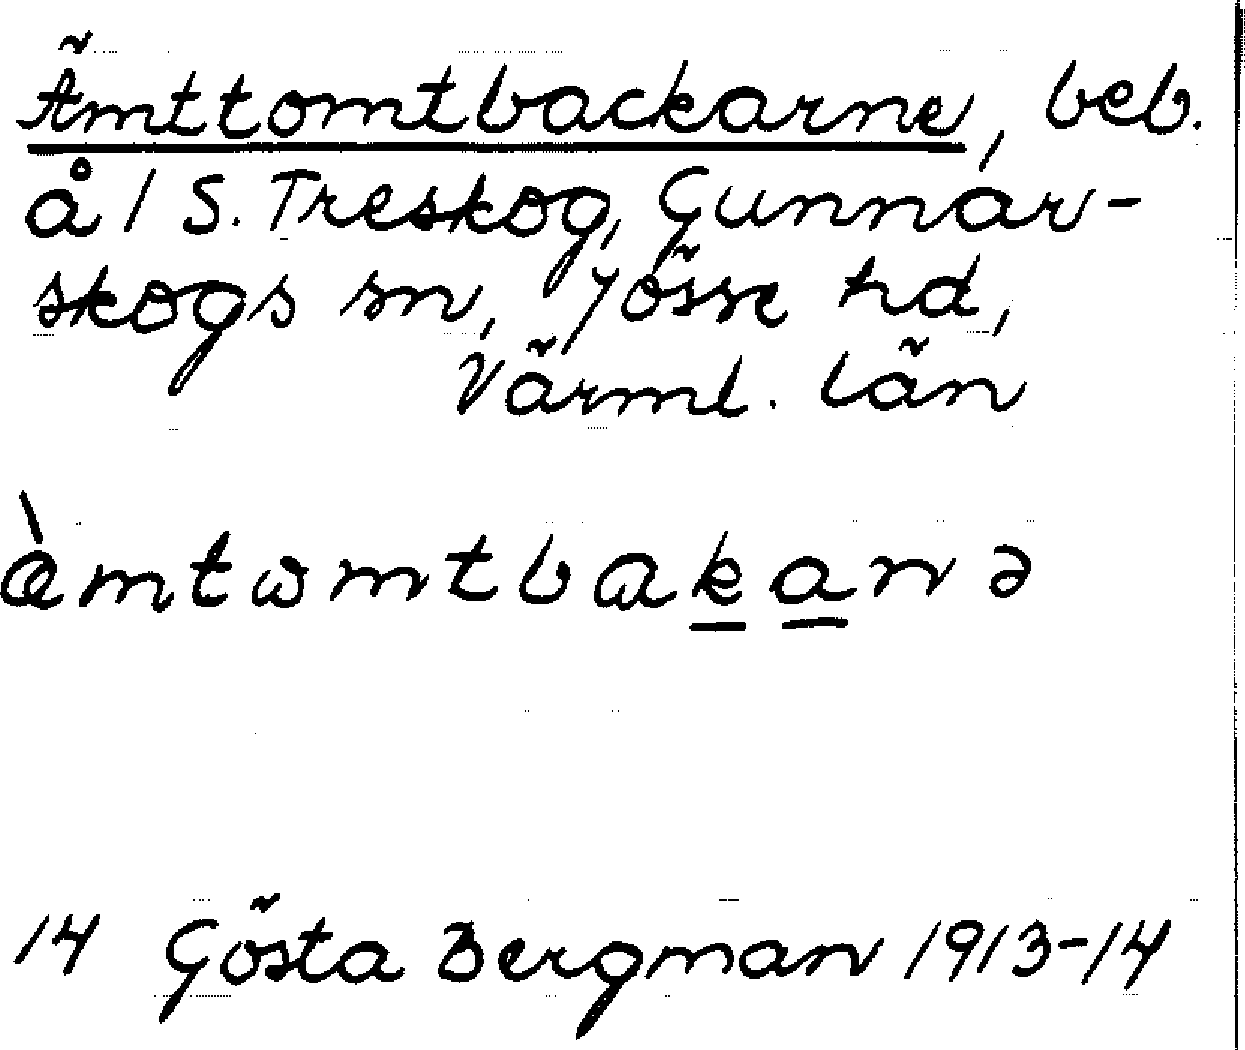 Ämttomtbackarne, beb.
å 1 S. Treskog, Gunnar-
skogs sn, Jösse hd,
Värml. län
æ̀mtωmtbakanə
14 Gösta Bergman 1913-14